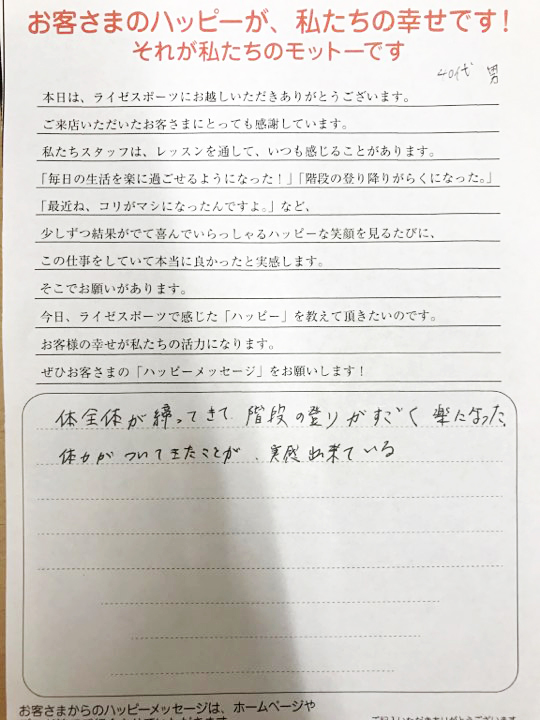 お客さまのハッピーが、私たちの幸せです！
それが私たちのモットーです
40代 男
本日は、ライゼスポーツにお越しいただきありがとうございます。
ご来店いただいたお客さまにとっても感謝しています。
私たちスタッフは、レッスンを通して、いつも感じることがあります。
「毎日の生活を楽に過ごせるようになった！」「階段の登り降りがらくになった。」
「最近ね、コリがマシになったんですよ。」など、
少しずつ結果がでて喜んでいらっしゃるハッピーな笑顔を見るたびに、
この仕事をしていて本当に良かったと実感します。
そこでお願いがあります。
今日、ライゼスポーツで感じた「ハッピー」を教えて頂きたいのです。
お客様の幸せが私たちの活力になります。
ぜひお客さまの「ハッピーメッセージ」をお願いします！
体全体が締ってきて 階段の登りがすごく 楽になった、
体力がついてきたことが、実感出来ている
お客さまからのハッピーメッセージは、ホームページや